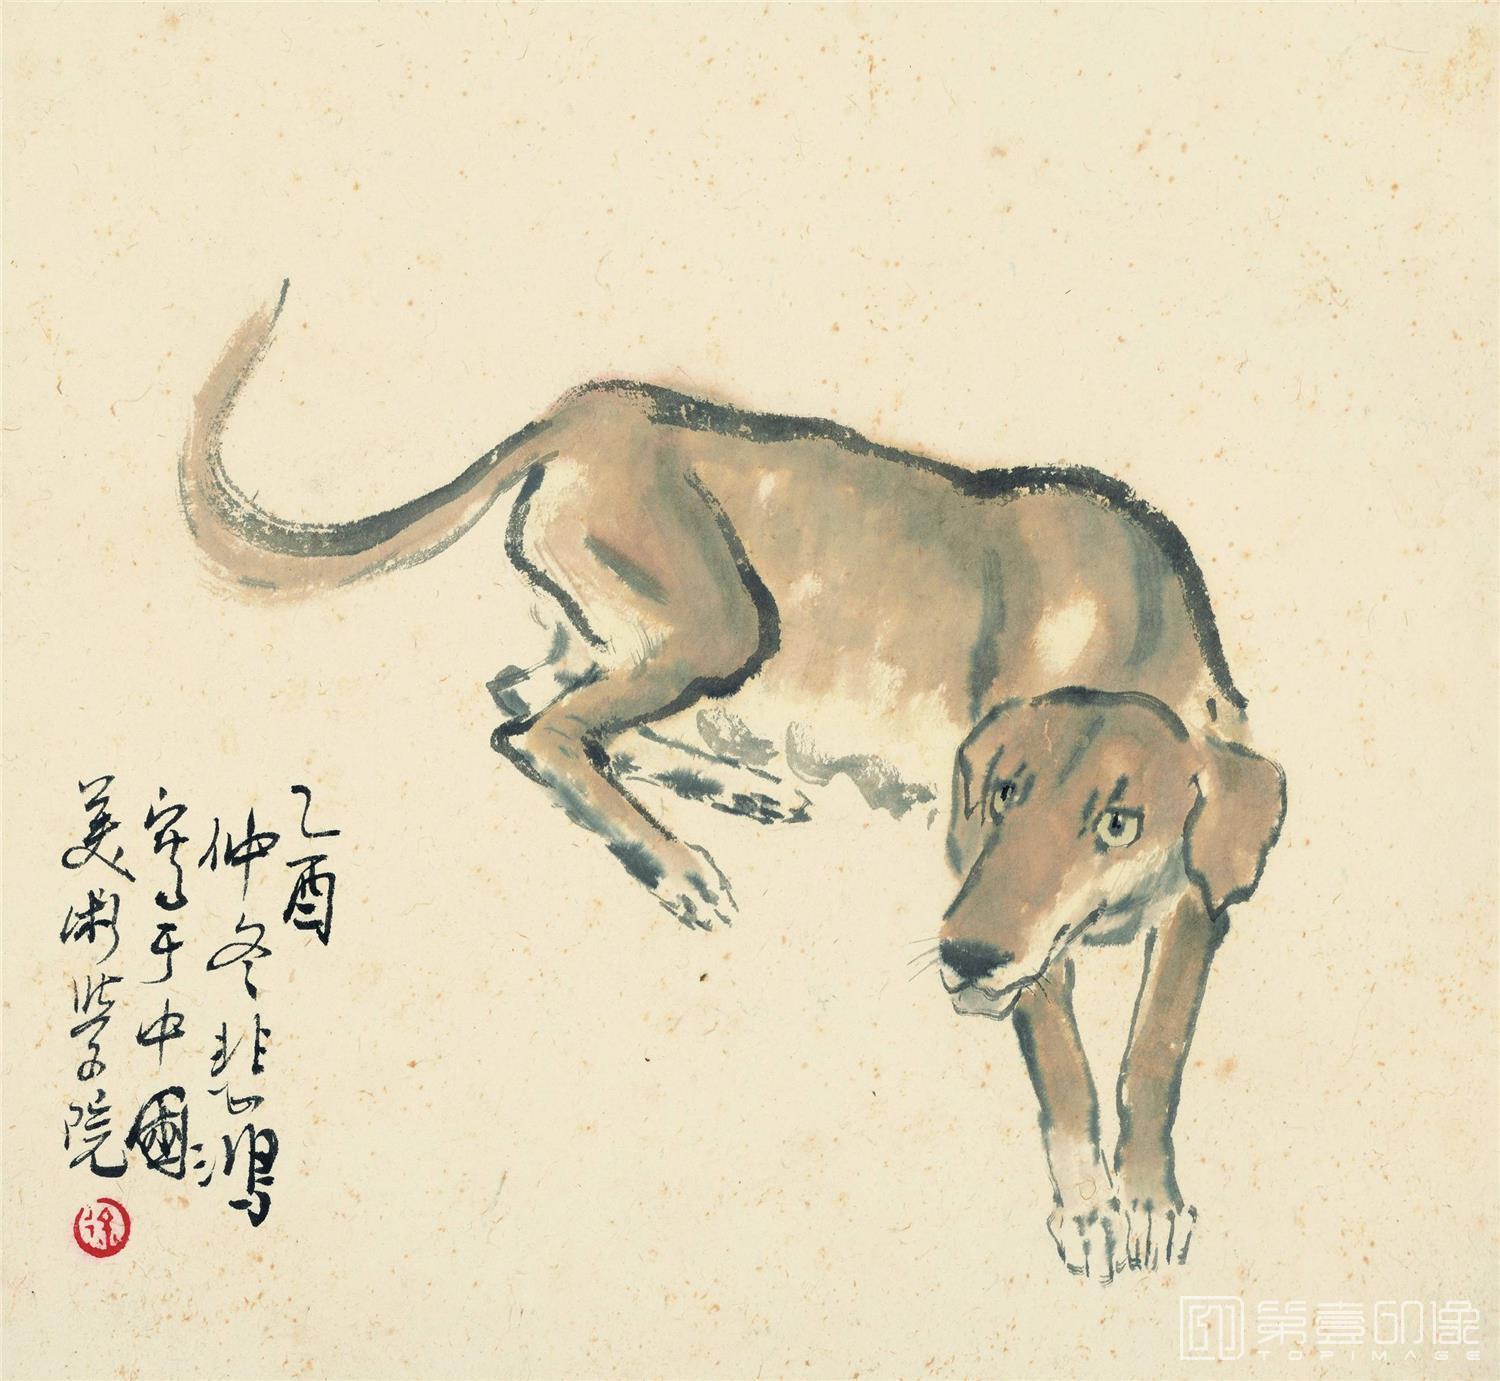 乙酉
仲冬悲鸿
写于中國
美術学院
徐
第壹印像
TOPIMAGE